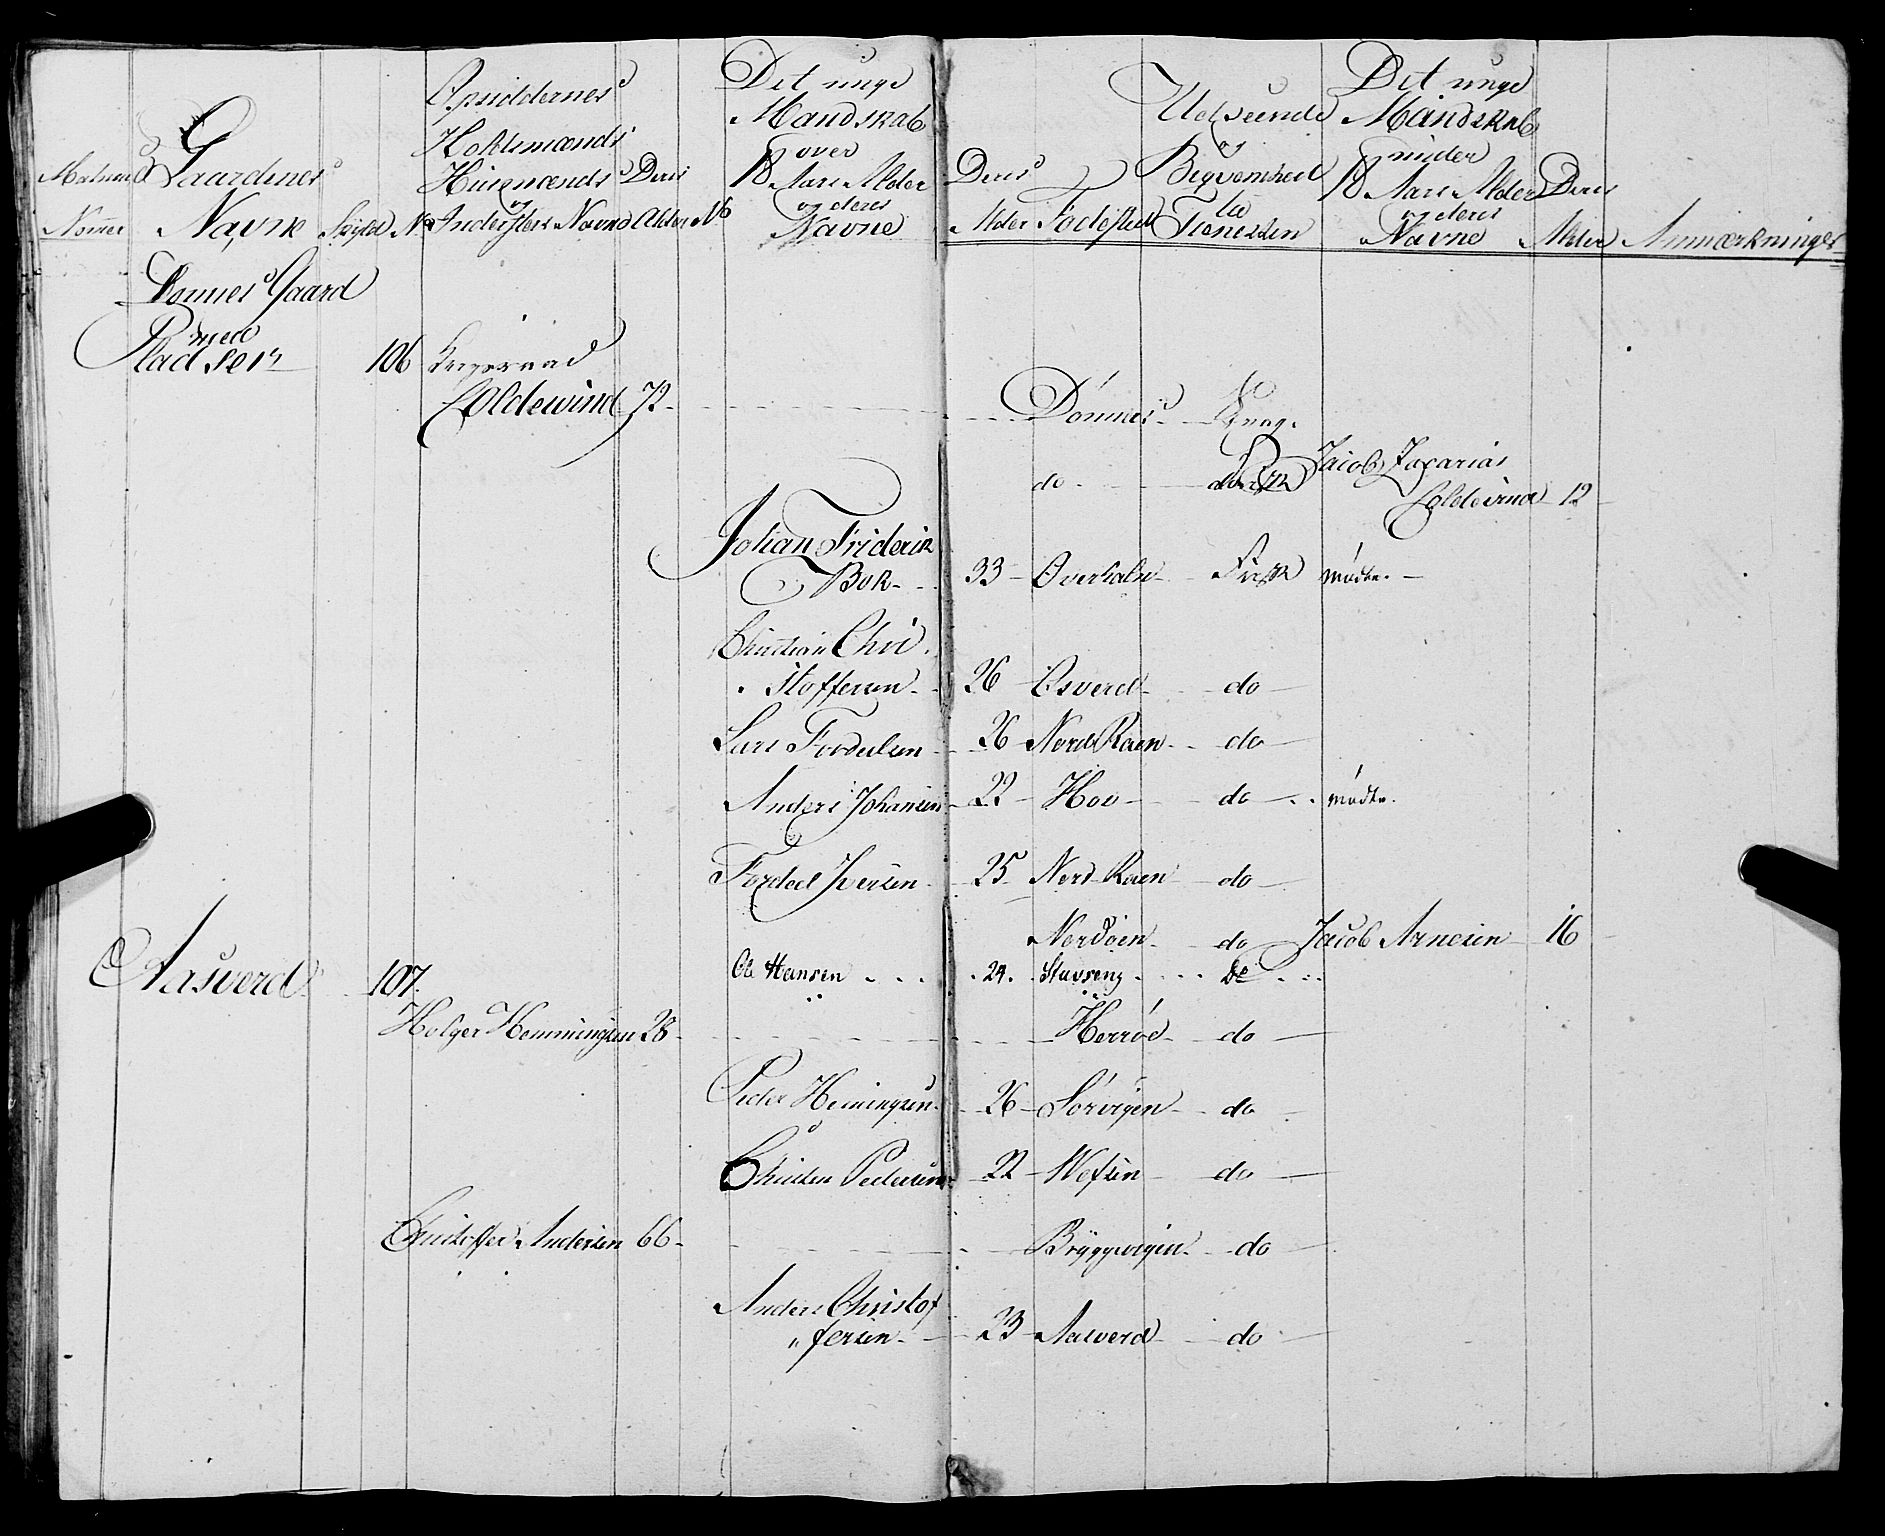 Gaardenes
Navne
Skyld
No
Opsiddernes
Huusmænds
og
Indersters Navne
Deres
Alder
No
Det unge
Mandskab
over
18 Aars Alder
og deres
Navne
Deres
Alder
Fødested
Udseende
og
Beqvemhed
til
Tienesten
Det unge
Mandskab
under
18 Aars Alder
og deres
Navne
Deres
Alder
Anmærkninger
Dønnes Gaard
med
Pladser 106
Coldewind 72 Dønnes Svag.
do Frisk Jacob Zacarias
Coldevind 12
Johan Friderik
Bok 33 Overhalv Frisk mødte.
Christian Chri
stoffersen 26 Osverd do
Lars Tordelsen 26 Nord Raen do
Anders Johansen 22 Hov do mødte.
Tordel Iversen 25 Nord Raen do
Nordøen do Jacob Arnesen 16
Aasverd 107. Ole Hansen 24. Stavseng Do
Holger Hemmingsen 28 Herrøe do
Peder Hemingsen 26 Sørvigen do
Christen Pedersen 22 Wefsen do
Christoffer Andersen 66 Bryggevigen do
Anders Christof
fersen 23 Aasverd do